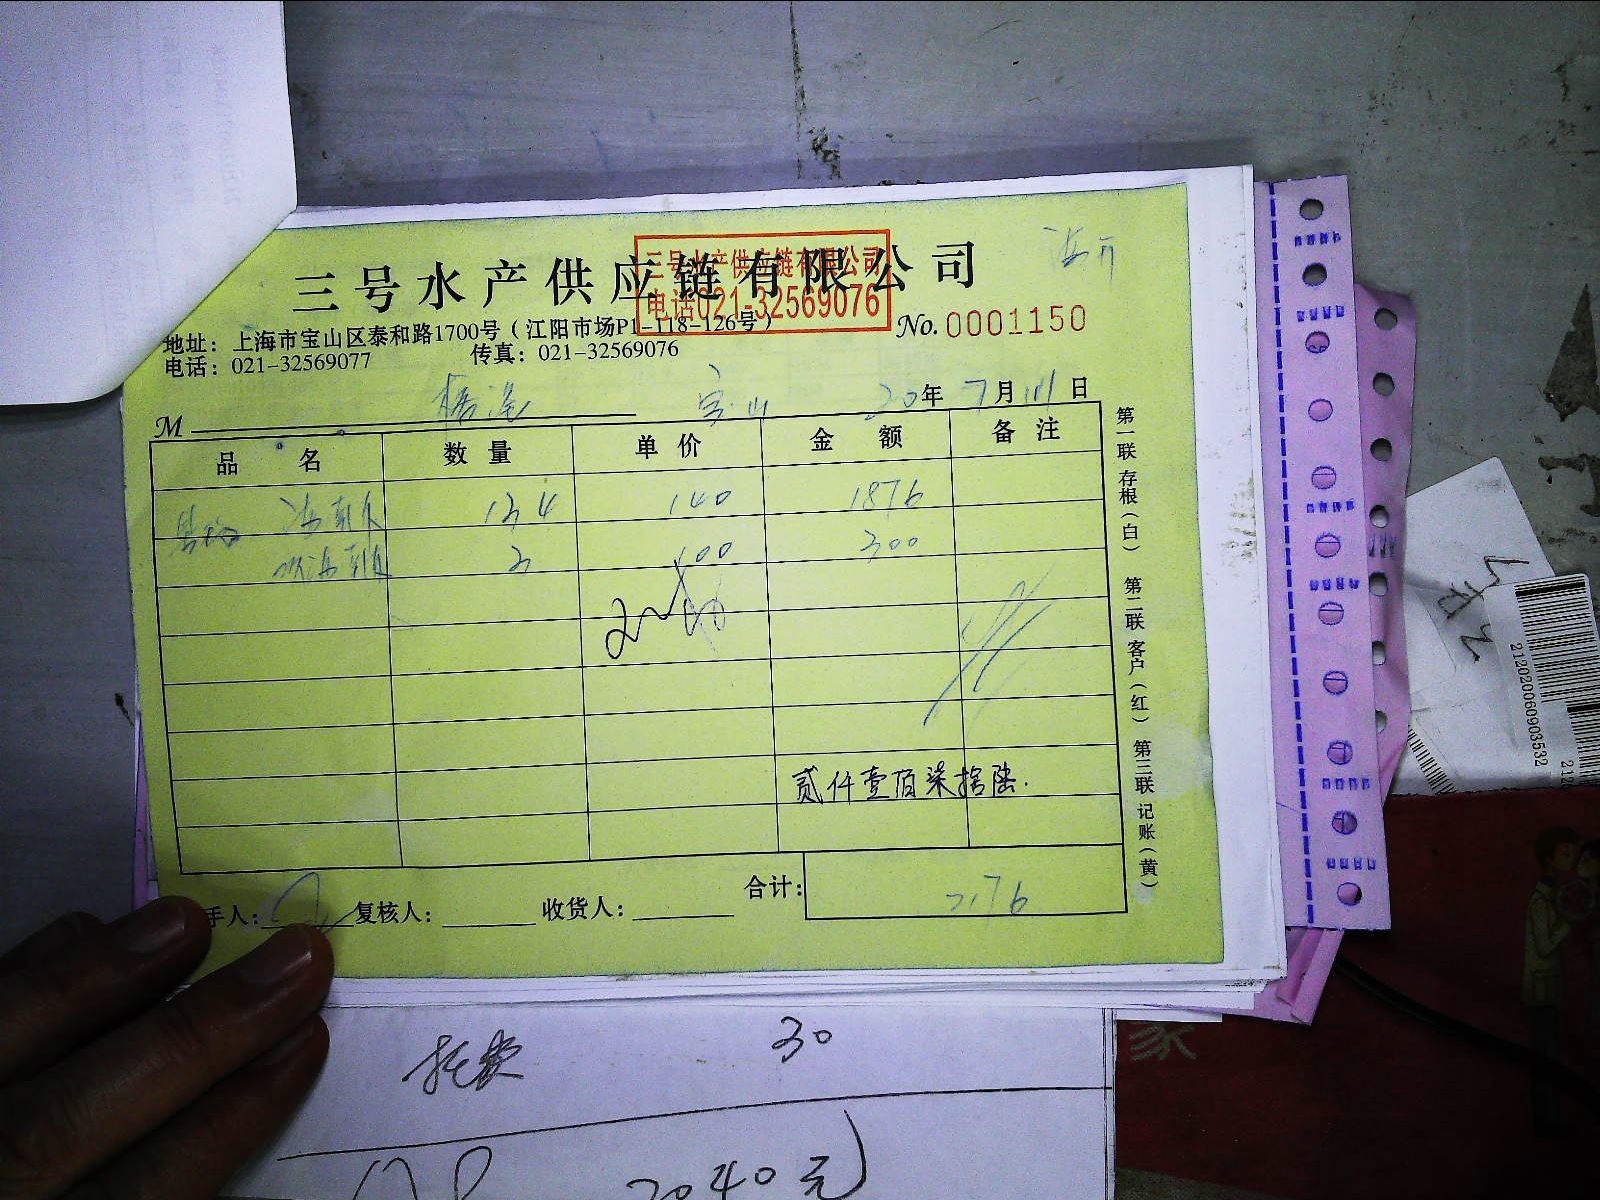 三号水产供应链有限公司
三号水产供应链有限公司
电话021-32569076
No.0001150
地址：上海市宝山区泰和路1700号（江阳市场P1-118-126号）
电话：021-32569077 传真：021-32569076
M 宝山 20年7月 日
品名 数量 单价 金额 备注
13.4 140 1876
3 100 300
贰仟壹佰柒拾陆.
合计： 2176
手人： 复核人： 收货人：
第一联 存根（白） 第二联 客户（红） 第三联 记账（黄）
212020060903532
家
30
2040元